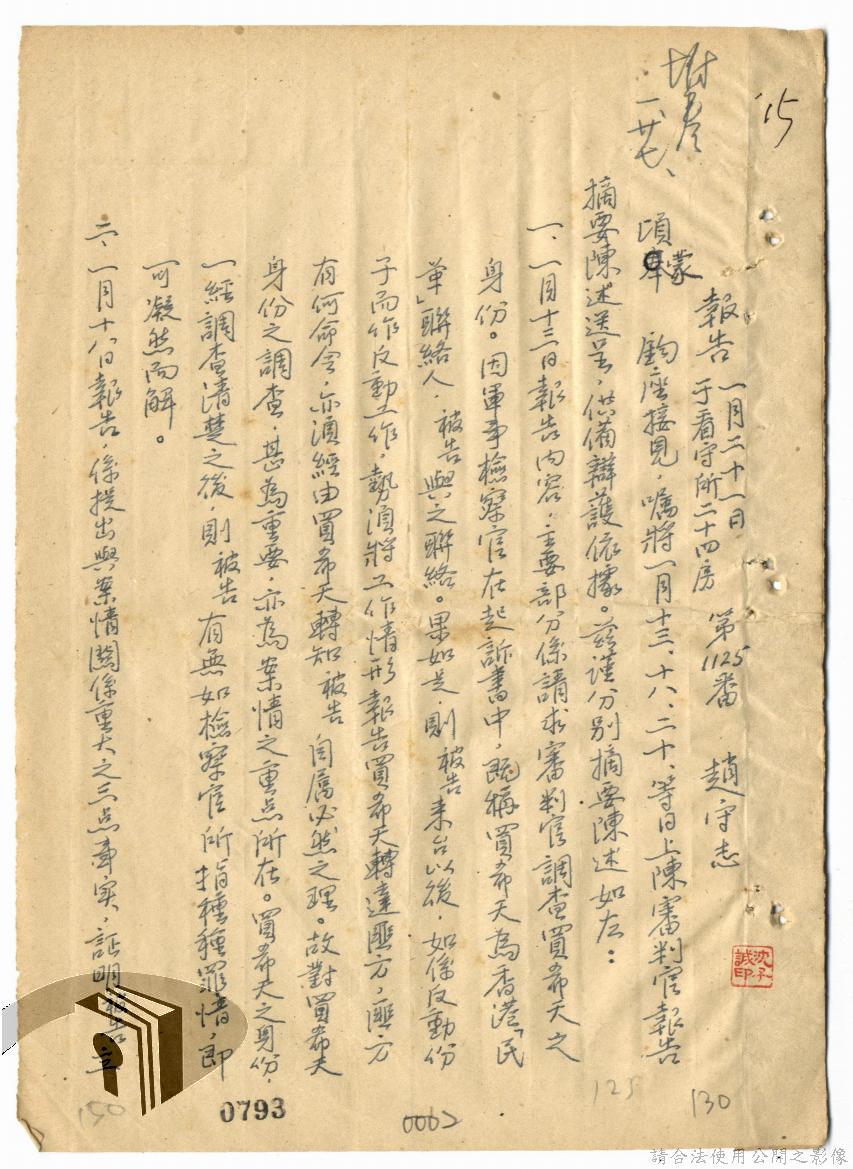 15
附卷
一、廿七、
報告 一月二十一日
于看守所二十四房 第1125番 趙守志
頃蒙 鈞座接見，囑將一月十三、十八、二十、等日上陳審判官報告
摘要陳述送呈，供備辯護依據。茲謹分別摘要陳述如左：
一、一月十三日報告內容，主要部分係請求審判官調查買希天之
身份。因軍事檢察官在起訴書中，既稱買希天為香港「民
革」聯絡人，被告與之聯絡。果如是，則被告來台以後，如係反動份
子而作反動工作，勢須將工作情形報告買希天轉達匪方，匪方
有何命令，亦須經由買希天轉知被告，自屬必然之理。故對買希天
身份之調查，甚為重要，亦為案情之重点所在。買希天之身份，
一經調查清楚之後，則被告有無如檢察官所指種種罪情，即
可凝然而解。
二、一月十八日報告，係提出與案情關係重大之三点事实，証明被告立
沈子誠印
125
130
150
0793
0062
請合法使用公開之影像